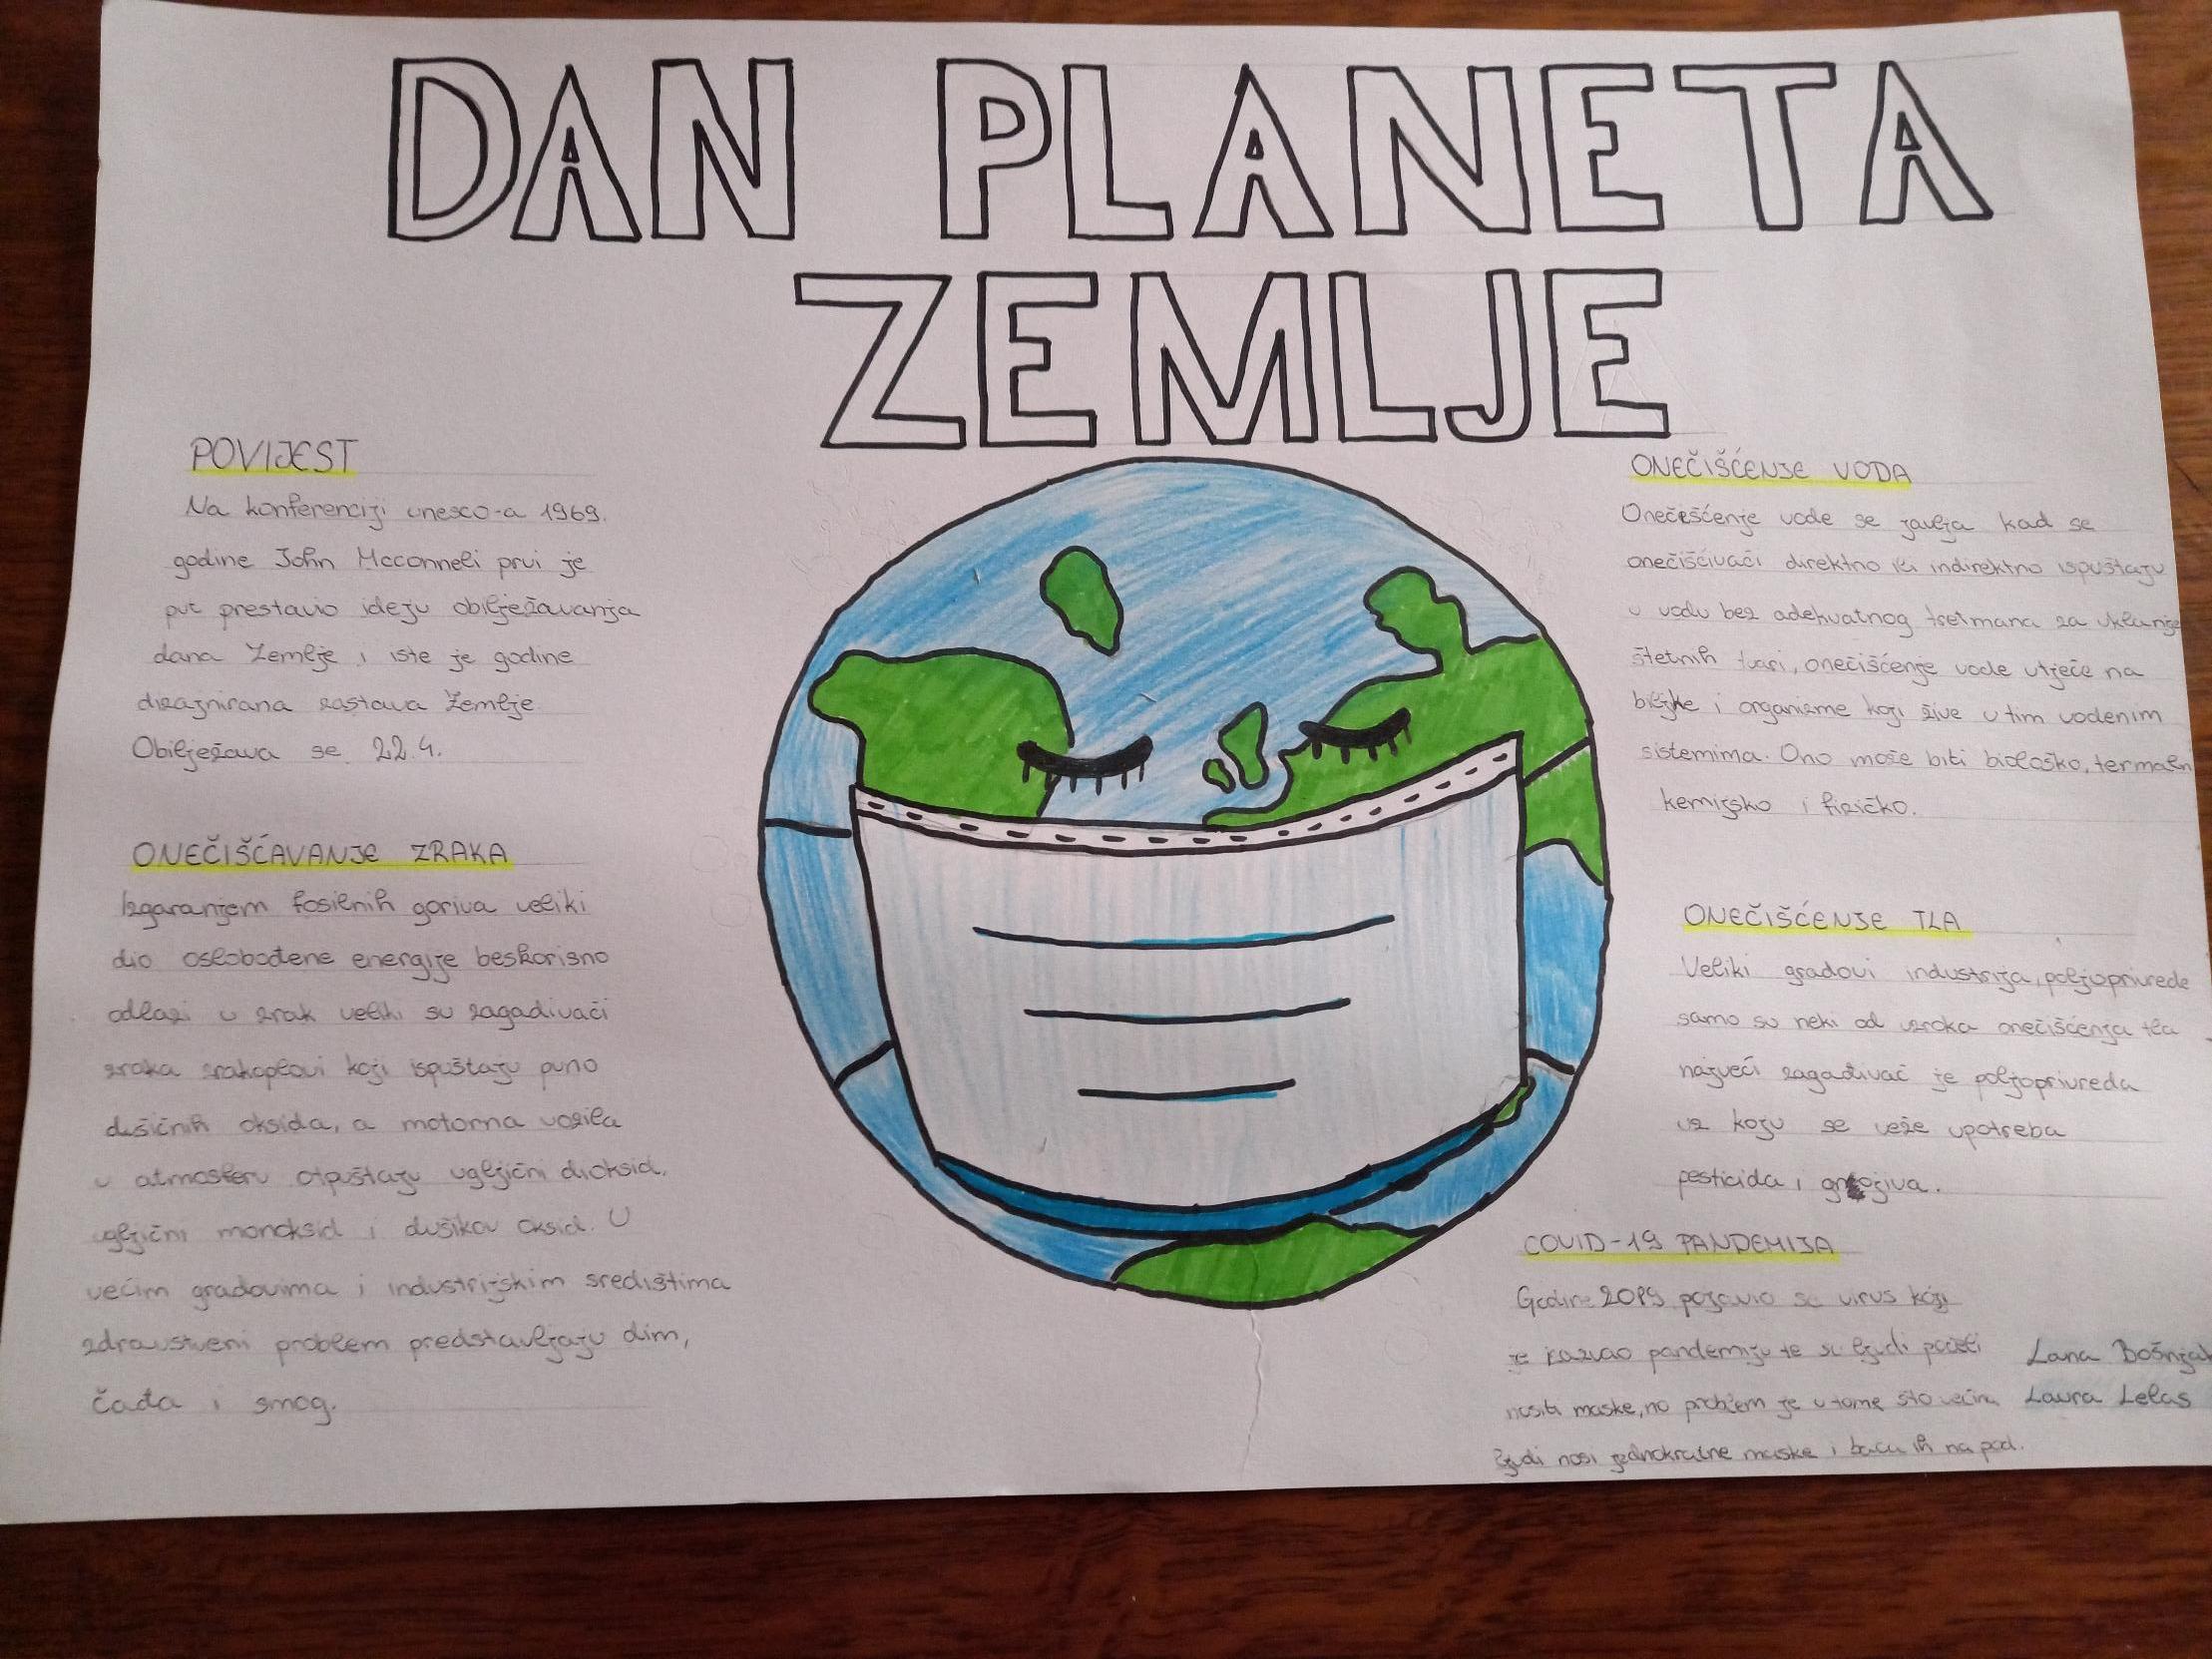 DAN PLANETA
ZEMLJE
POVIJEST
Na konferenciji unesco-a 1969.
godine John Mcconneli prvi je
put prestavio ideju obilježavanja
dana Zemlje i iste je godine
dizajnirana zastava Zemlje
Obilježava se 22.4.
ONEČIŠĆAVANJE ZRAKA
Izgaranjem fosilnih goriva veliki
dio oslobođene energije beskorisno
odlazi u zrak veliki su zagađivači
zraka zrakoplovi koji ispuštaju puno
dušičnih oksida, a motorna vozila
u atmosferu otpuštaju ugljični dioksid,
ugljični monoksid i dušikov oksid. U
većim gradovima i industrijskim središtima
zdravstveni problem predstavljaju dim,
čađa i smog.
ONEČIŠĆENJE VODA
Onečešćenje vode se javlja kad se
onečišćivači direktno ili indirektno ispuštaju
u vodu bez adekvatnog tretmana za uklanje
štetnih tvari, onečišćenje vode utječe na
biljke i organizme koji žive u tim vodenim
sistemima. Ono može biti biološko, termaln
kemijsko i fizičko.
ONEČIŠĆENJE TLA
Veliki gradovi industrija, poljoprivrede
samo su neki od uzroka onečišćenja tla
najveći zagađivač je poljoprivreda
uz koju se veže upotreba
pesticida i gnojiva.
COVID-19 PANDEMIJA
Godine 2019 pojavio se virus koji
je izazvao pandemiju te su ljudi počeli
nositi maske, no problem je u tome što većina
ljudi nosi jednokratne maske i bacu ih na pod.
Lana Bošnjak
Laura Lelas